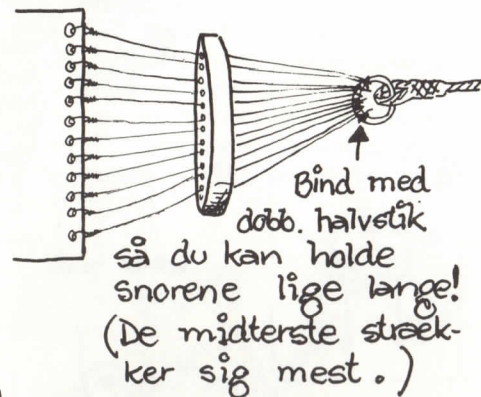 Bind med
dobb. halvstik
så du kan holde
snorene lige lange!
(De midterste stræk-
ker sig mest.)